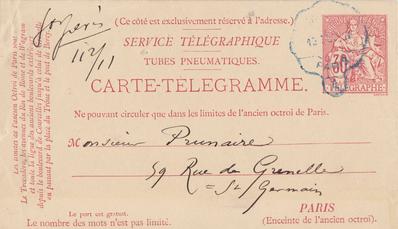 (Ce côté est exclusivement réservé à l'adresse.)
SERVICE TÉLÉGRAPHIQUE
TUBES PNEUMATIQUES.
CARTE-TÉLÉGRAMME.
Ne pouvant circuler que dans les limites de l'ancien octroi de Paris.
Monsieur Prunaire
59 Rue de Grenelle
=St Germain
PARIS
(Enceinte de l'ancien octroi.)
Le port est gratuit.
Le nombre des mots n'est pas limité.
112/11
30
TÉLÉGRAPHE
Les limites de l'ancien Octroi de Paris sont:
Le Trocadéro, les avenues du Roi de Rome et de Wagram
et toute la ligne des anciens boulevards extérieurs
depuis le boulevard de Courcelles jusqu'à celui de
en passant par la place du Trône et le pont de Bercy.